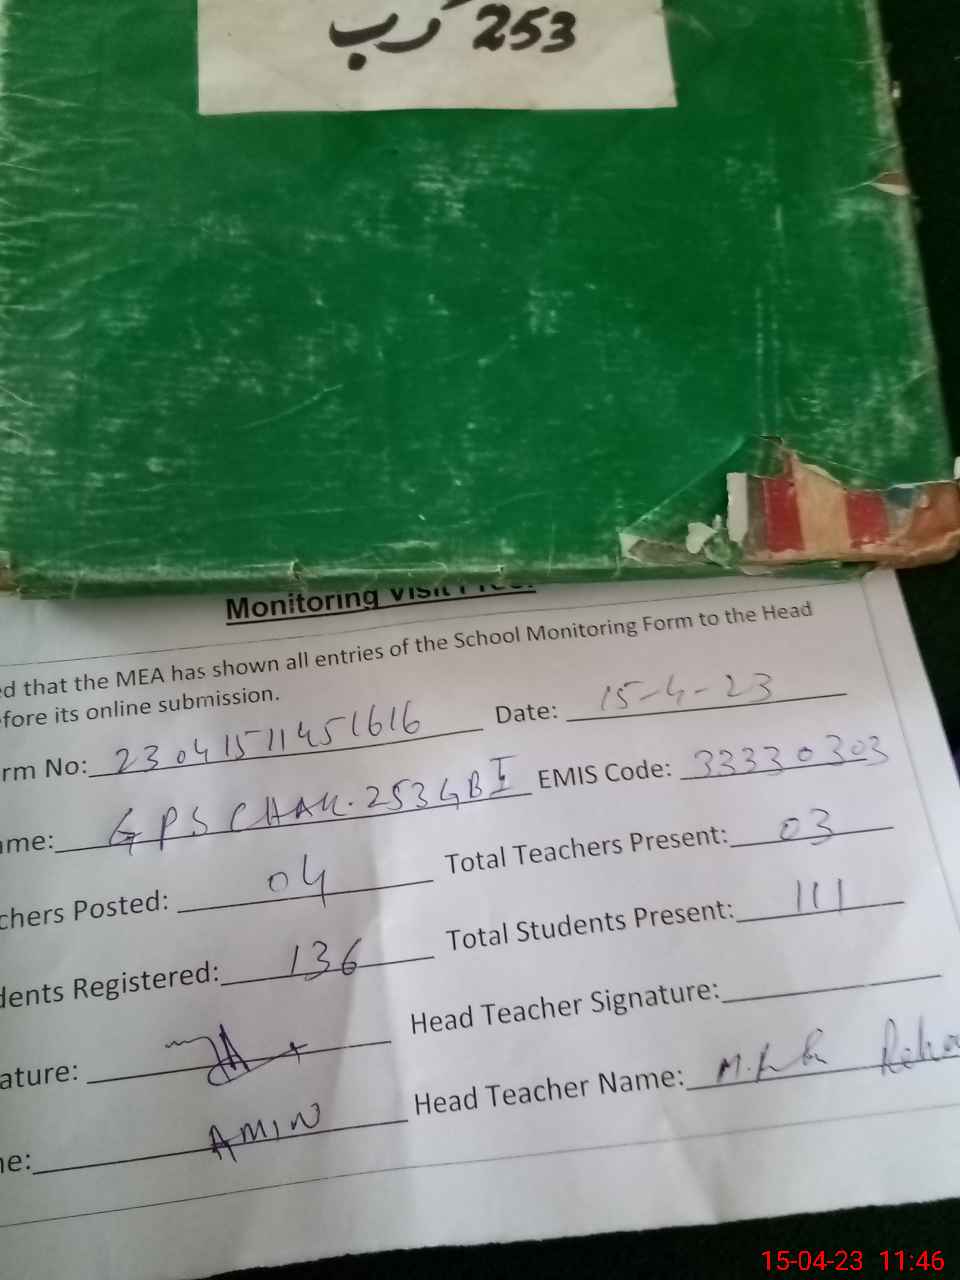 253 رب
Monitoring Visit Proof
ed that the MEA has shown all entries of the School Monitoring Form to the Head
fore its online submission.
rm No: 23041511451616 Date: 15-4-23
ame: GPS CHAK. 253 GB I EMIS Code: 33330303
chers Posted: 04 Total Teachers Present: 03
dents Registered: 136 Total Students Present: 111
ature: Head Teacher Signature:
ne: AMIN Head Teacher Name: M.
15-04-23 11:46